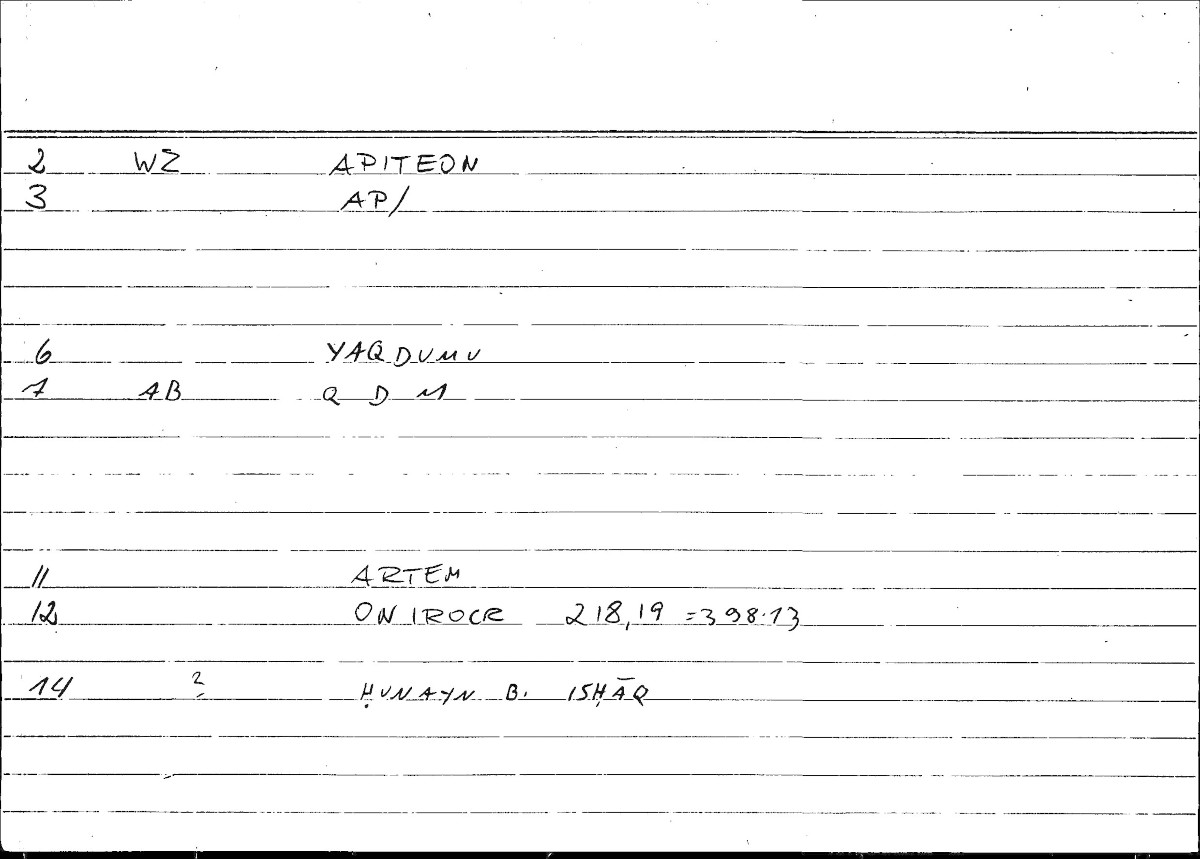 2 WZ APITEON
3 AP/
6 YAQDUMU
7 AB Q D M
11 ARTEM
12 ONIROCR 218,19 =398.13
14 2 ḤUNAYN B. ISḤĀQ